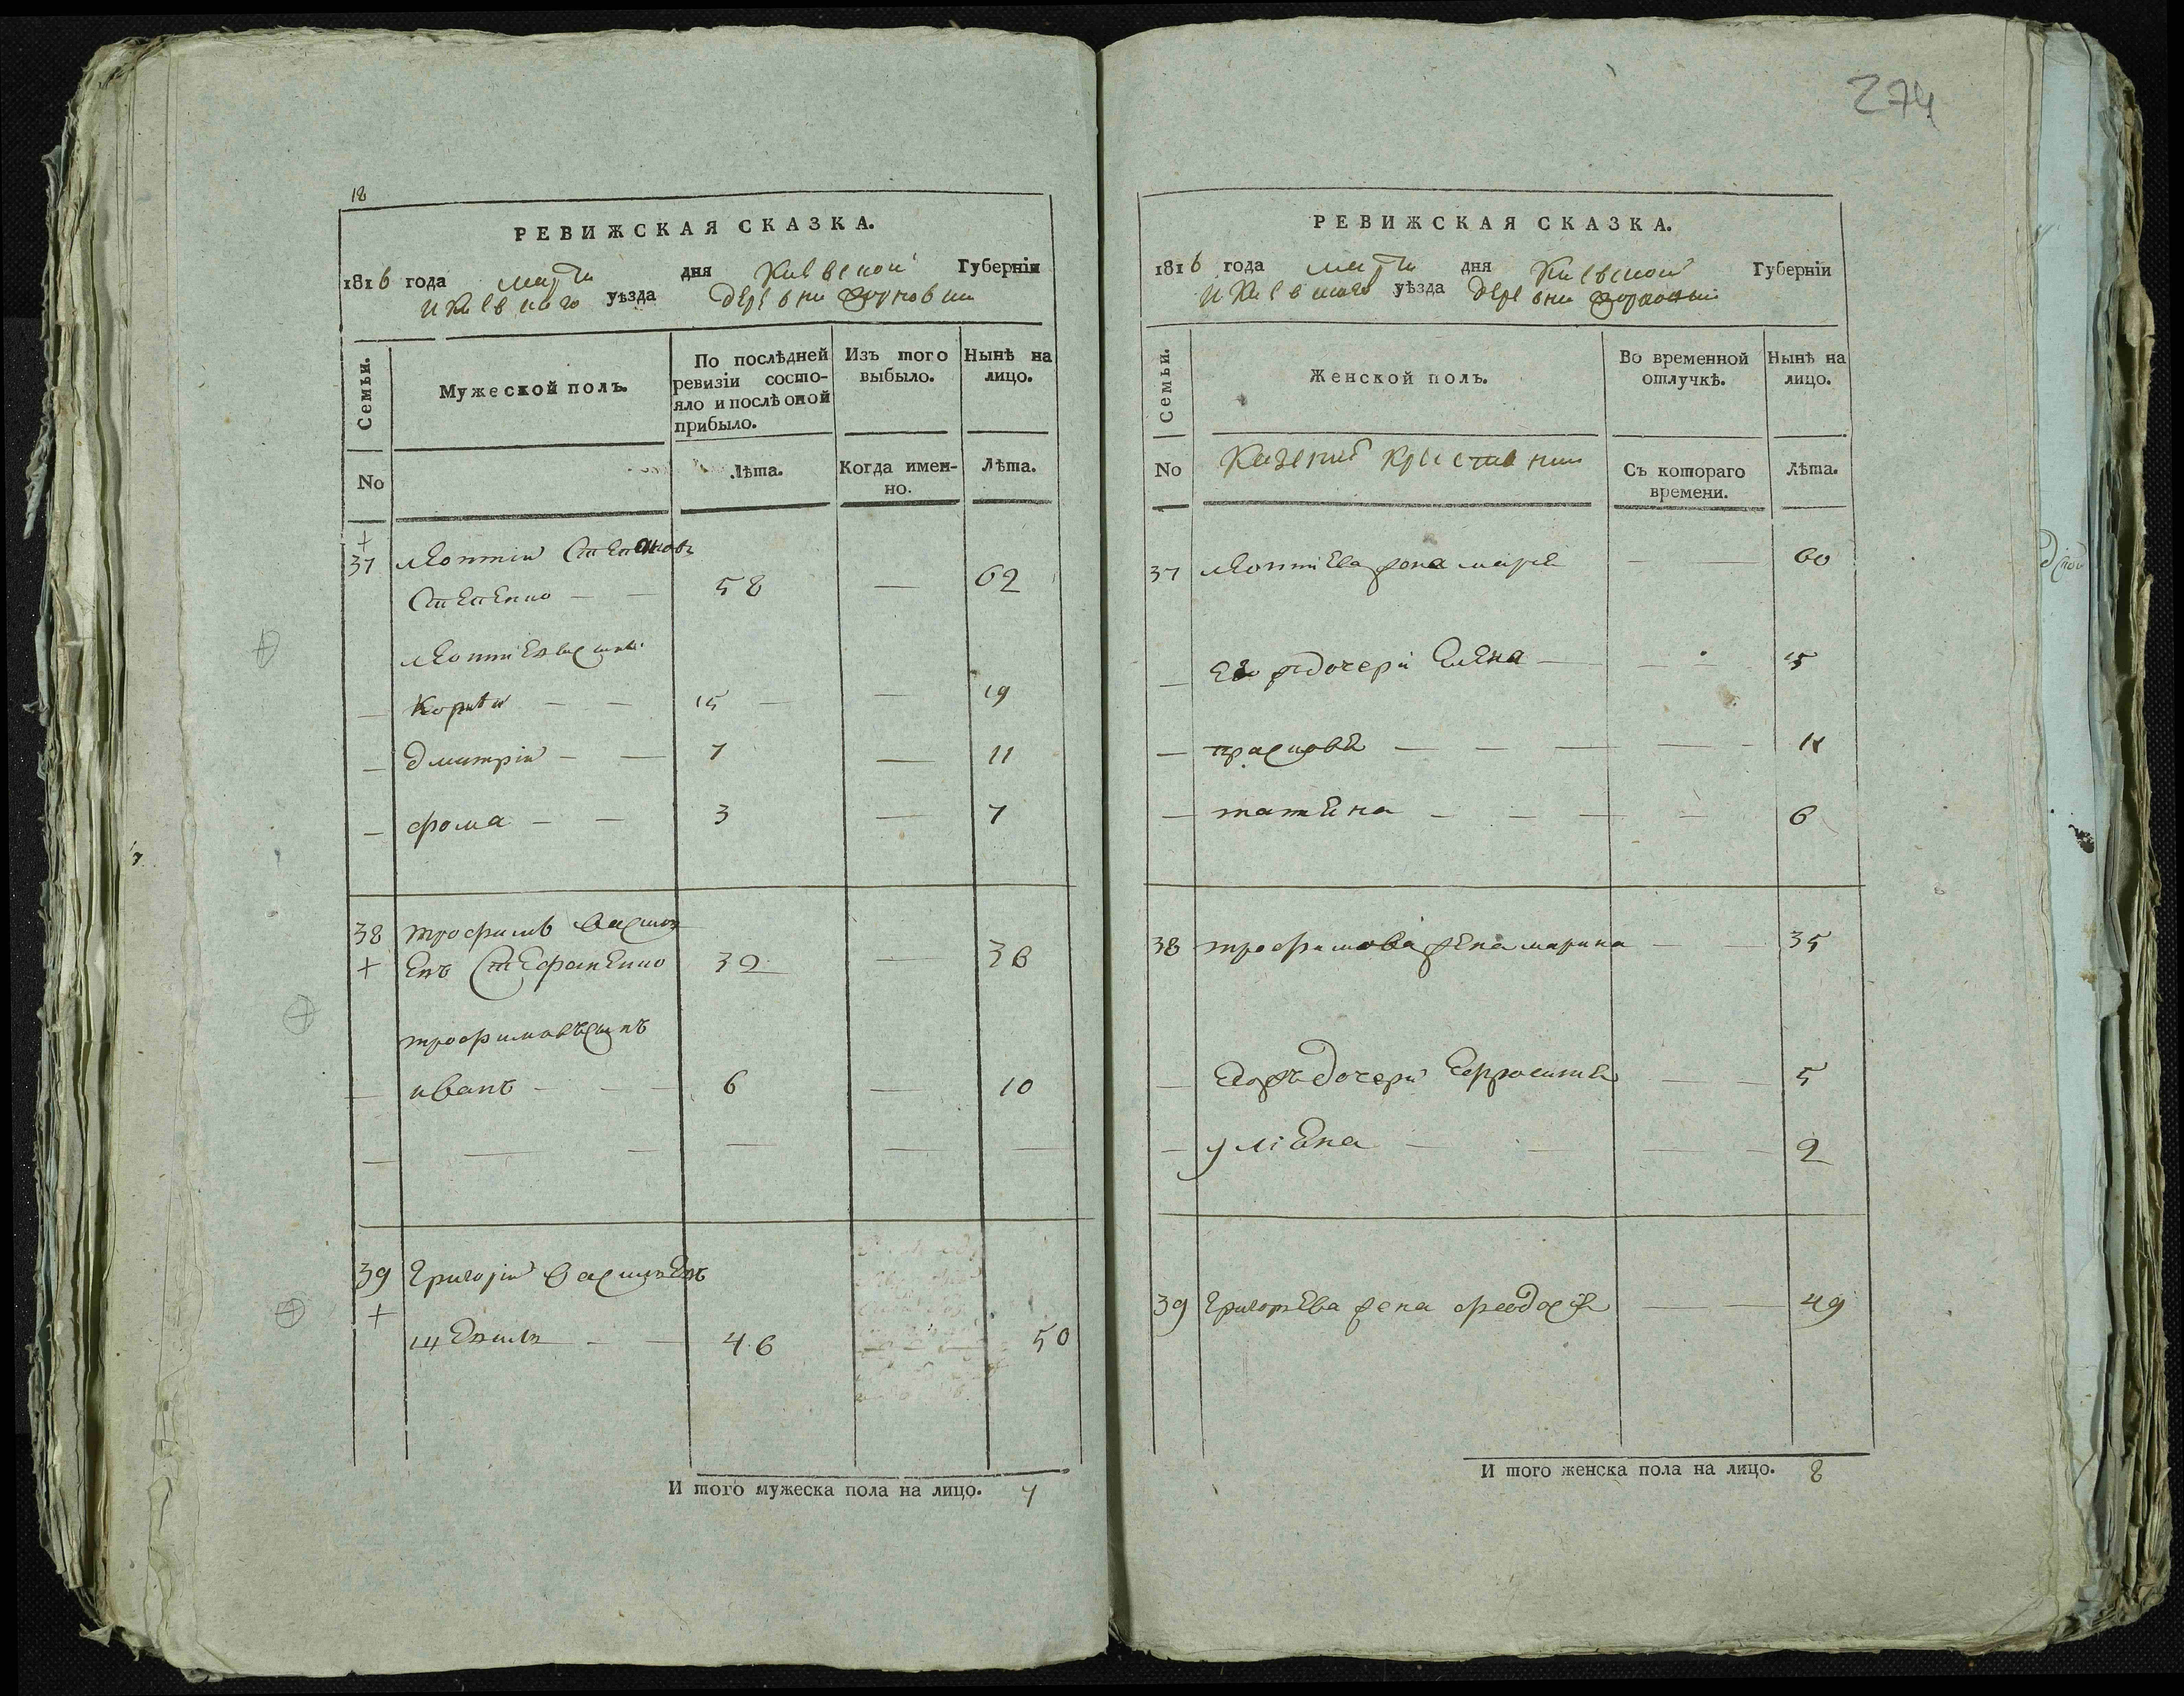 18
РЕВИЖСКАЯ СКАЗКА.
1816 года марта дня Киевской Губерніи
и Киевского уѣзда деревни
Семьи.
Мужеской полъ.
По послѣдней ревизіи состо-
яло и послѣ оной
прибыло.
Изъ того
выбыло.
Нынѣ на
лицо.
No
Лѣта.
Когда имен-
но.
Лѣта.
37 леонтій Степановъ
Степенко 58 — 62
леонтіевы сины
— Корнѣй — — 15 — — 19
— дмитрій — — 7 — 11
— фома — — 3 — 7
38 трофимъ Василі
+ евъ Стефаненко 32 — 36
трофимовъ синъ
— иванъ — — — 6 — 10
39 Григорій василіевъ
+
— — 46 50
И того мужеска пола на лицо. 7
274
РЕВИЖСКАЯ СКАЗКА.
1816 года марта дня Киевской Губерніи
и Киевского уѣзда деревни
Семьи.
Женской полъ.
Во временной
отлучкѣ.
Нынѣ на
лицо.
No
Казеніи крестяни
Съ котораго
времени.
Лѣта.
37 леонтіева жена маріе — — 60
— Его ж дочери Елена — — 15
— прасковѣ — — — — 11
— татѣна — — — — 6
38 трофимова жена марина — — 35
— Егожъ дочери Ефросинѣ — — 5
— улiѣна — — — — 2
39 Григоріева жена феодосѣ — — 49
И того женска пола на лицо. 8